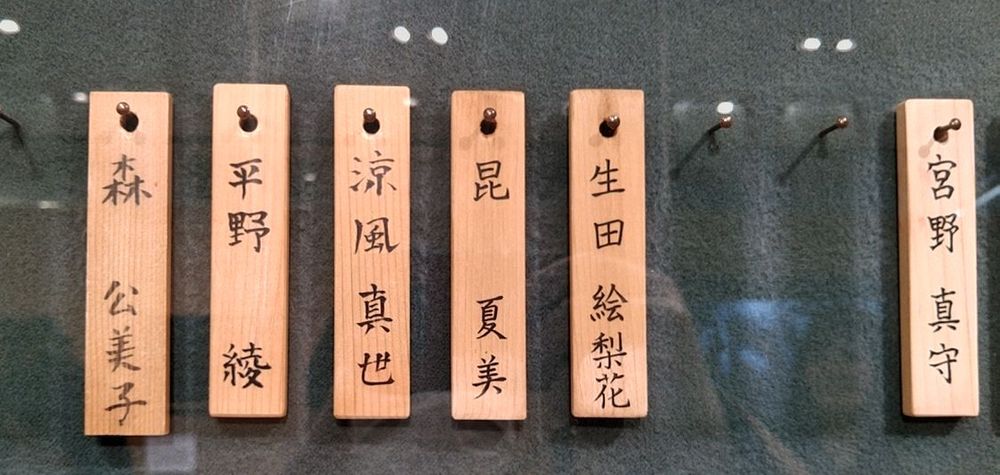 森 公美子
平野 綾
涼風 真世
昆 夏美
生田 絵梨花
宮野 真守